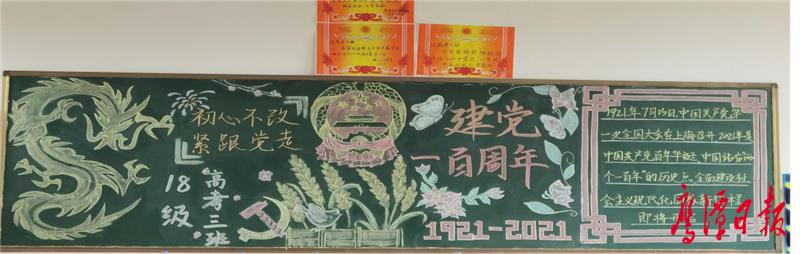 初心不改
紧跟党走
18级
高考三班
建党
一百周年
1921-2021
1921年7月23日,中国共产党第
一次全国大会在上海召开 2021年是
中国共产党百年华诞 中国站在"两
个一百年"的历史点。全面建设社
会主义现代化
新
程
即将
鹰潭日报